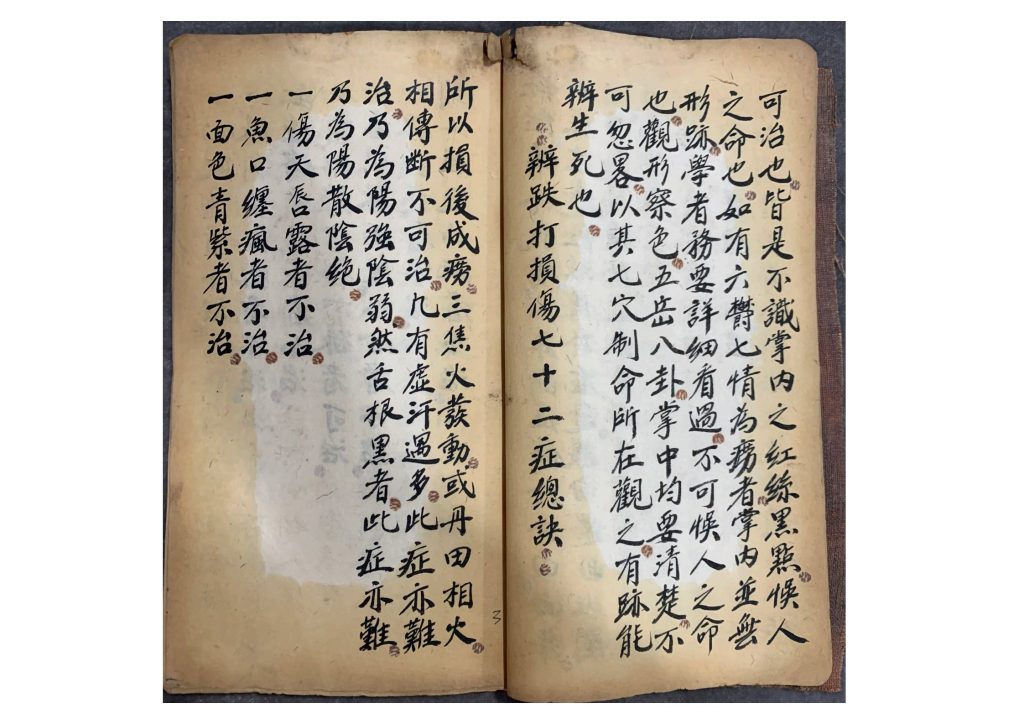 可治也皆是不識掌內之紅絲黑點悞人
之命也如有六欝七情為癆者掌內並無
形跡學者務要詳細看過不可悞人之命
也觀形察色五岳八卦掌中均要清楚不
可忽畧以其七穴制命所在觀之有跡能
辨生死也
辨跌打損傷七十二症總訣
所以損後成癆三焦火發動或丹田相火
相傳斷不可治凡有虛汗過多此症亦難
治乃為陽強陰弱然舌根黑者此症亦難
乃為陽散陰絶
一傷天唇露者不治
一魚口纏瘋者不治
一面色青紫者不治
3